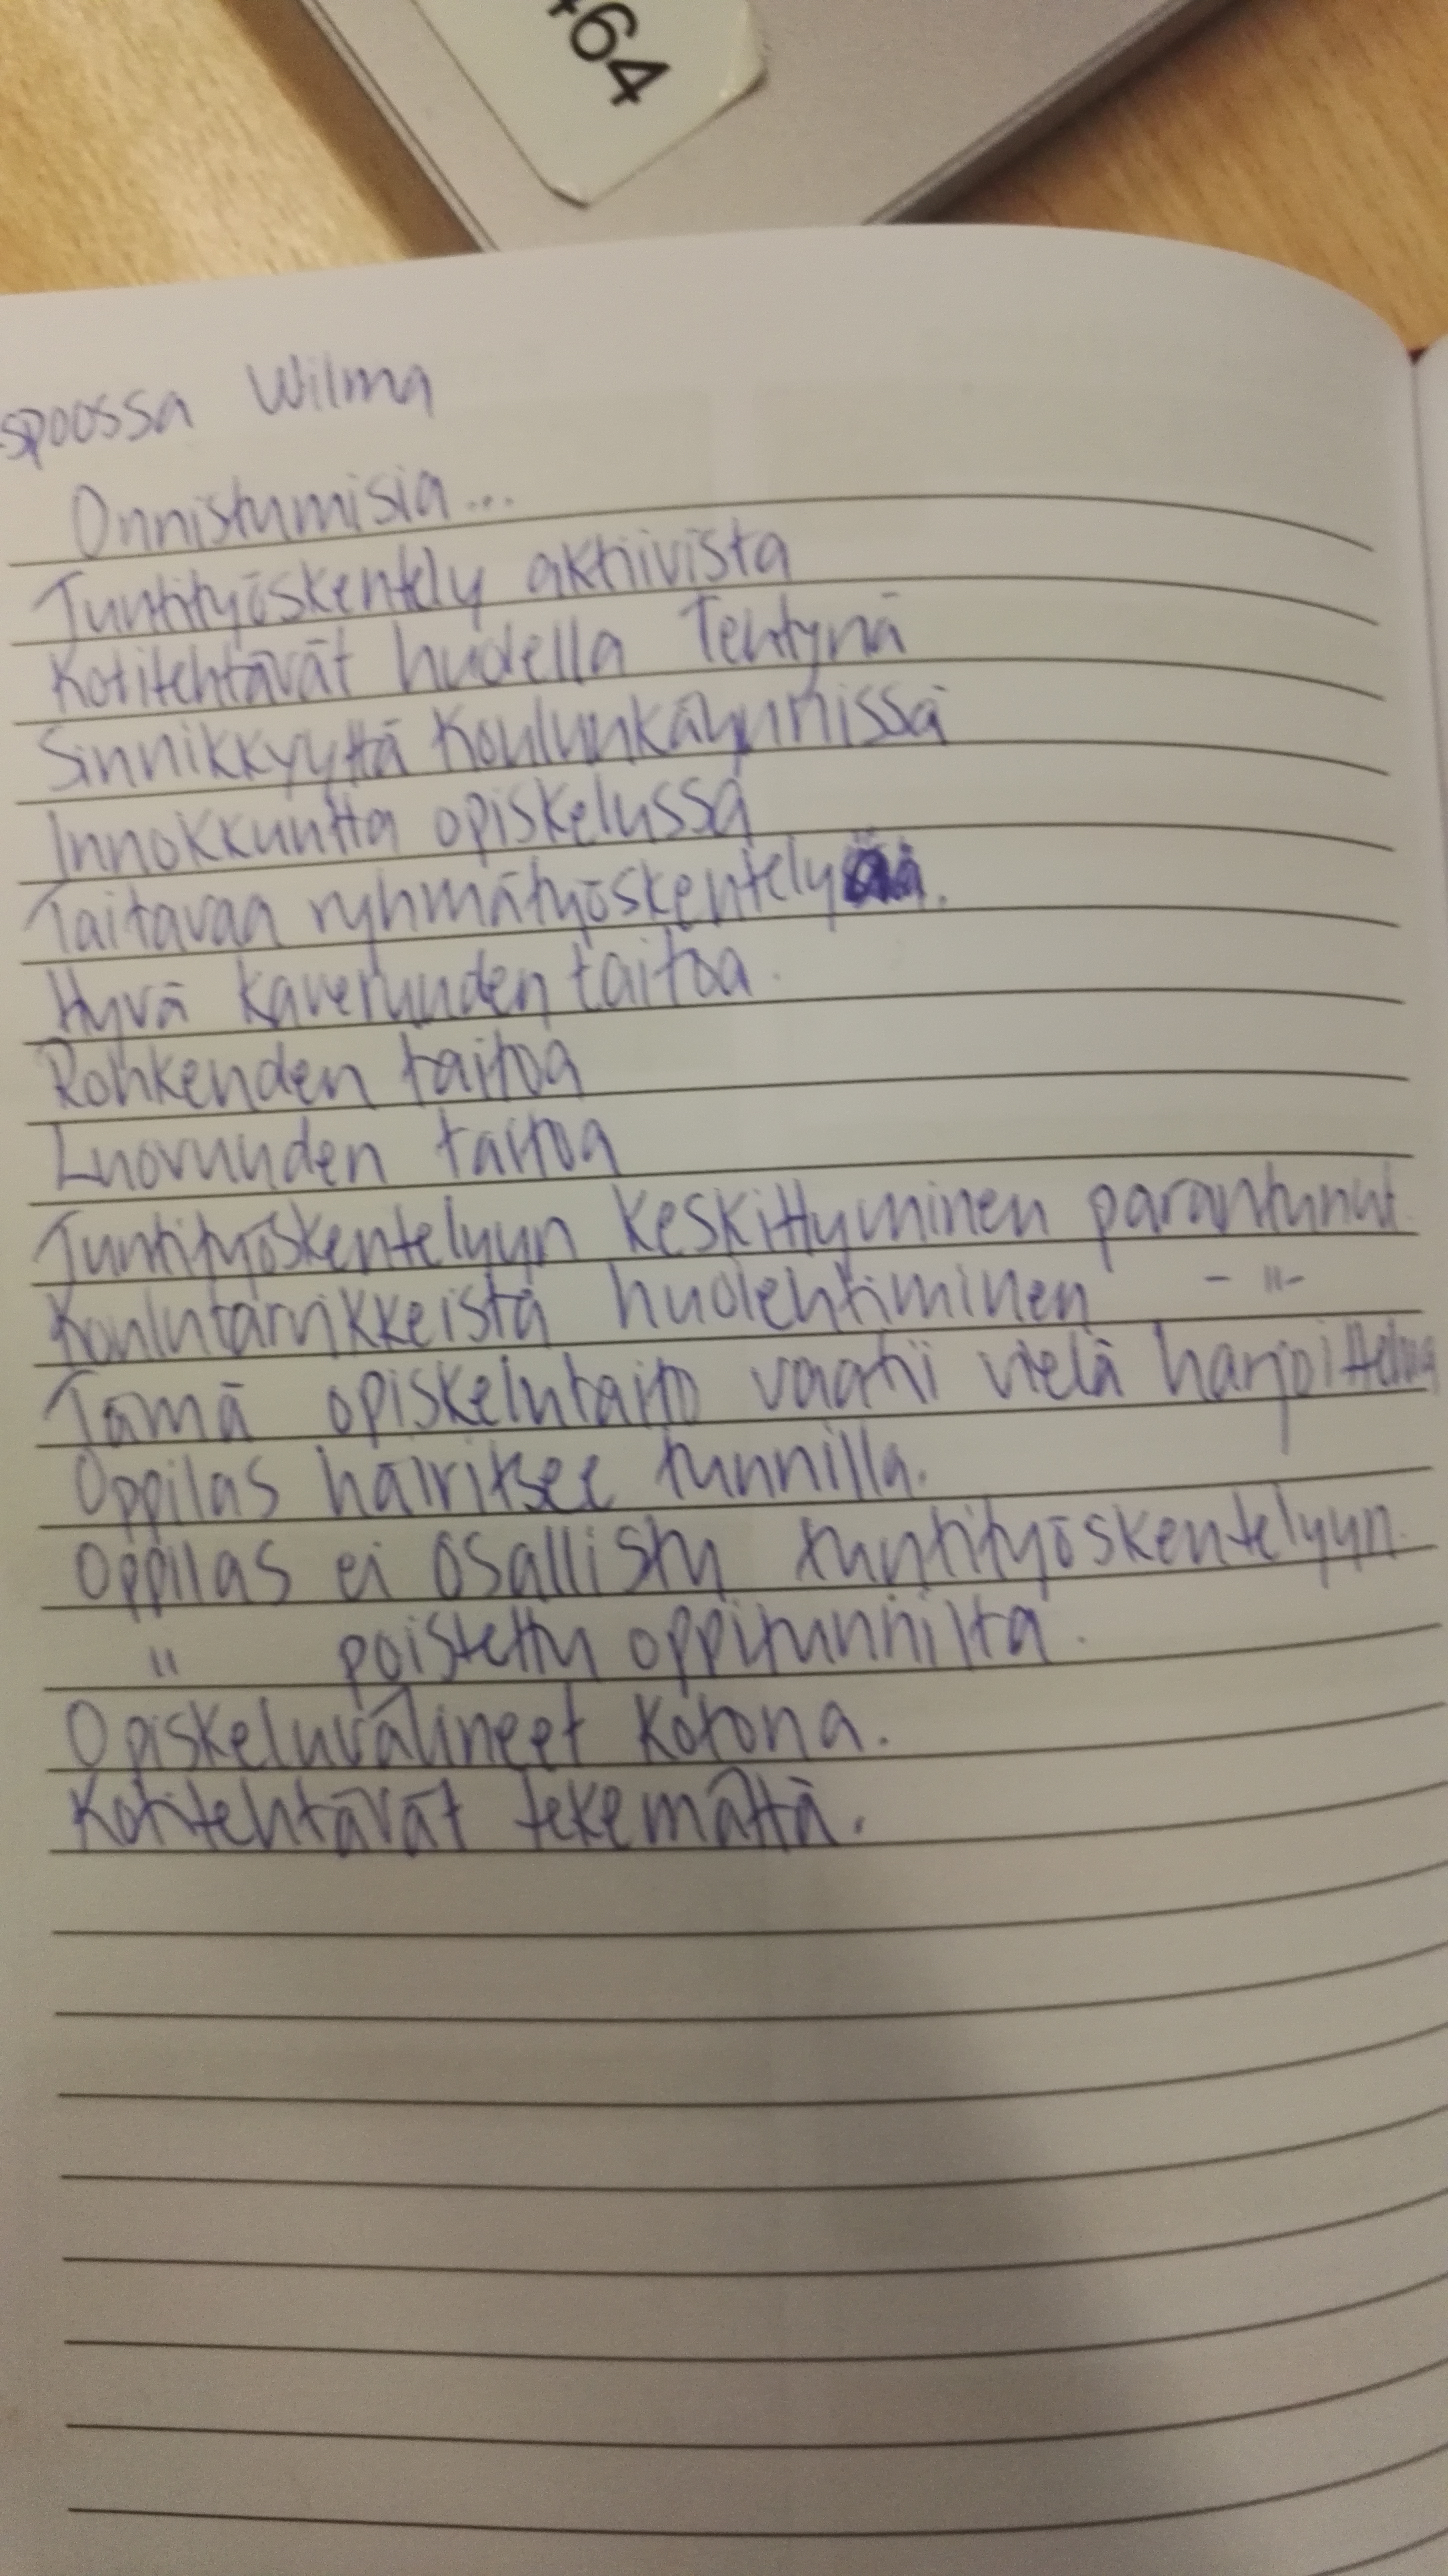 464
spoossa Wilma
Onnistumisia...
Tuntityöskentely aktiivista
Kotitehtävät huolella Tehtynä
Sinnikkyyttä Koulunkäynnissä
Innokkuutta opiskelussa
Taitavaa ryhmätyöskentelyää.
Hyvä kaveruuden taitoa.
Rohkeuden taitoa
Luovuuden taitoa
Tuntityöskentelyyn keskittyminen parantunut
Koulutarvikkeista huolehtiminen - " -
Tämä opiskelutaito vaatii vielä harjoittelua
Oppilas häiritsee tunnilla.
Oppilas ei osallistu tuntityöskentelyyn.
" poistettu oppitunnilta.
Opiskeluvälineet kotona.
Kotitehtävät tekemättä.